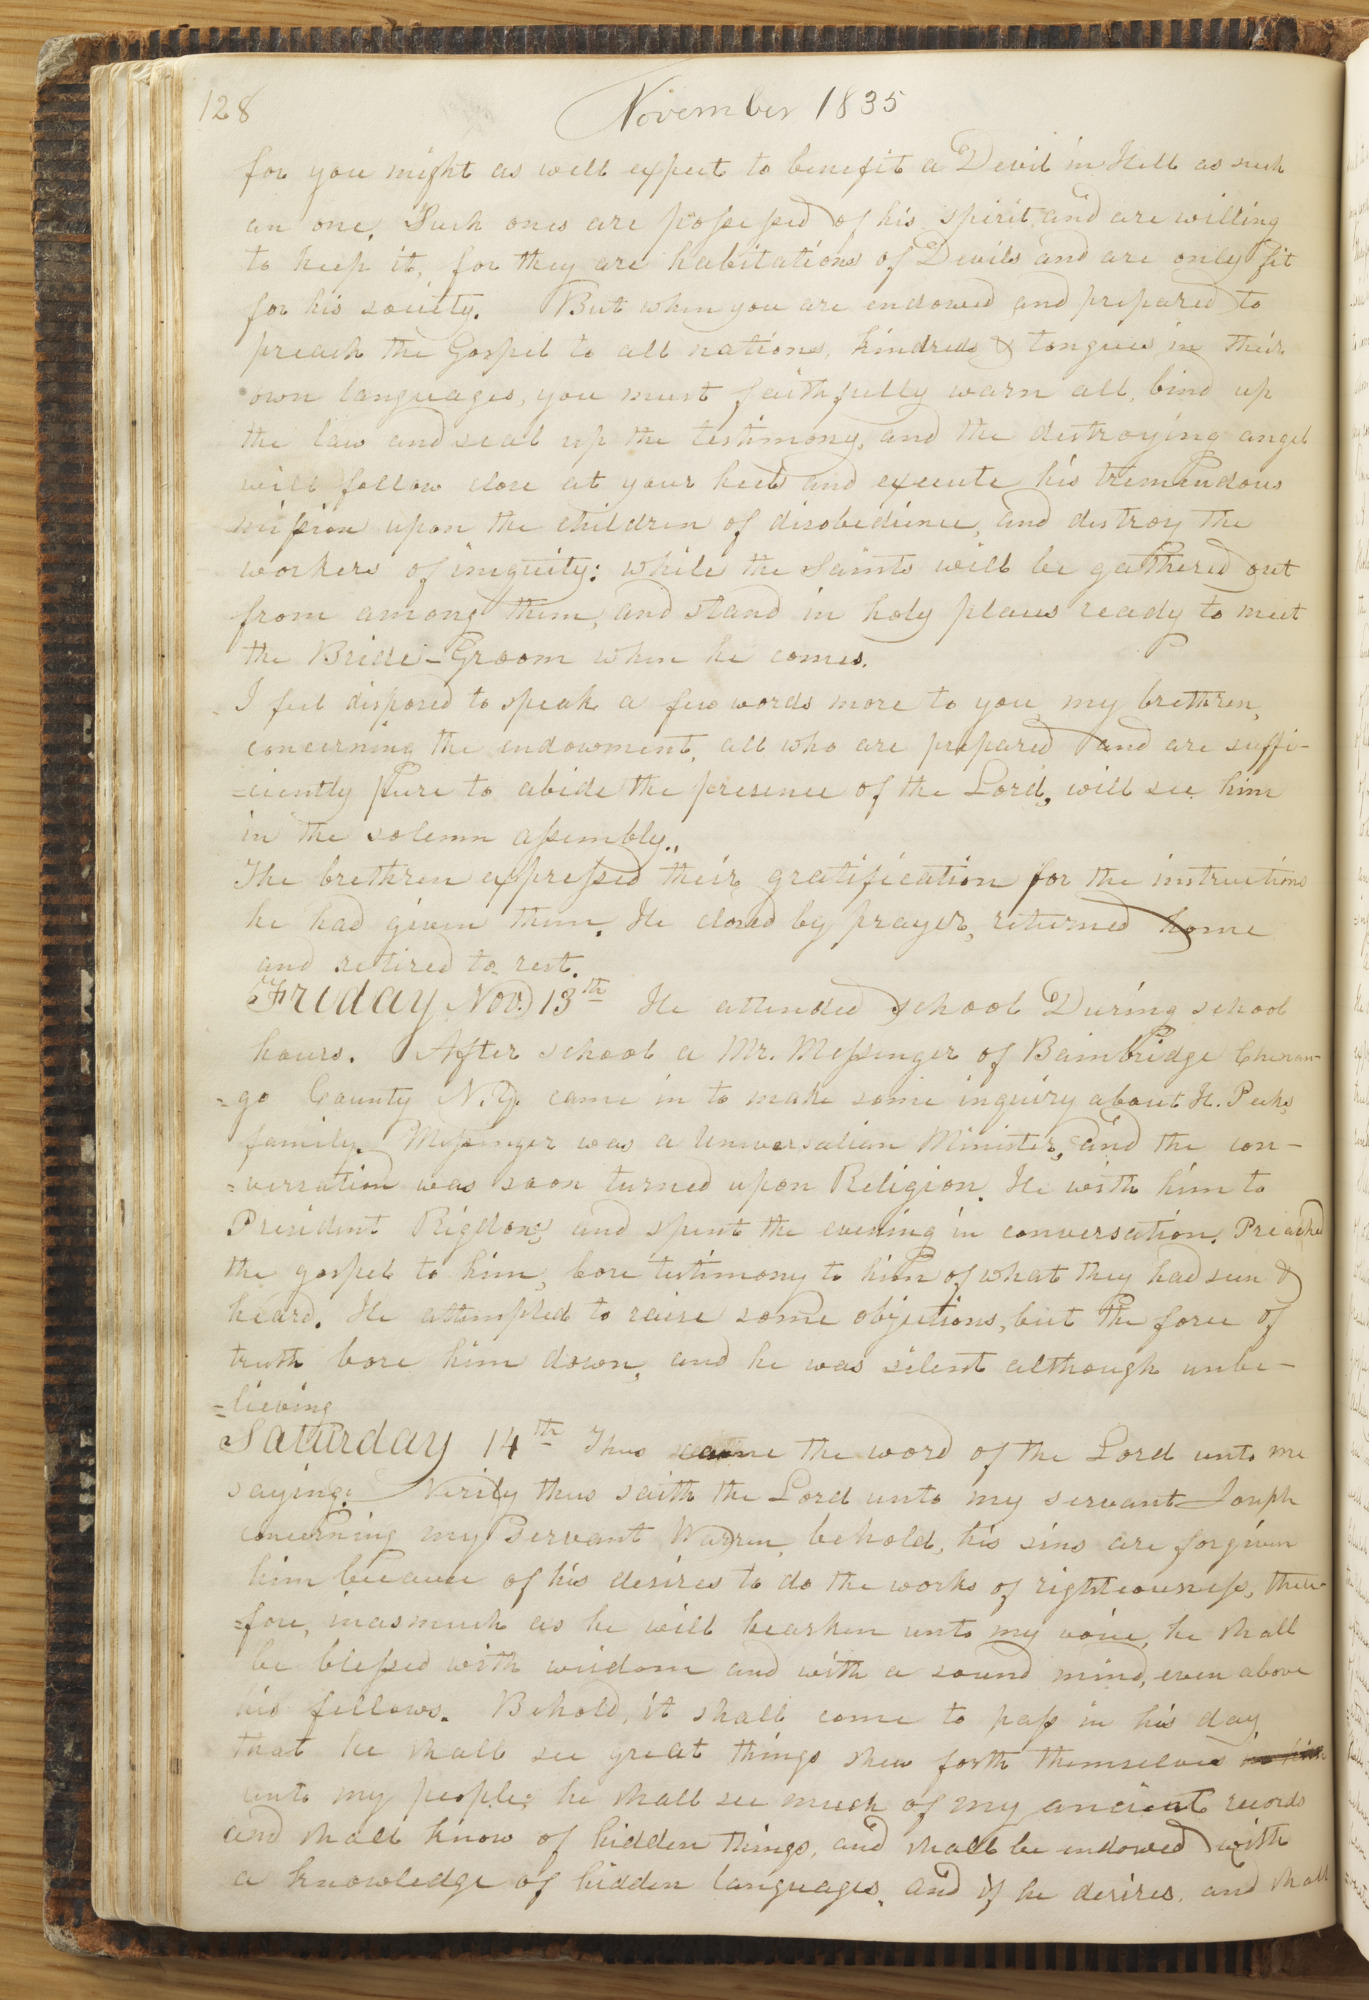 128
November 1835
for you might as well expect to benefit a Devil in Hell as such
an one. Such ones are possessed of his spirit and are willing
to keep it, for they are habitations of Devils and are only fit
for his society. But when you are endowed and prepared to
preach the Gospel to all nations, kindreds & tongues in their
own languages, you must faithfully warn all, bind up
the law and seal up the testimony, and the destroying angel
will follow close at your heels and execute his tremendous
mission upon the children of disobedience, and destroy the
workers of iniquity: while the Saints will be gathered out
from among them, and stand in holy places ready to meet
the Bride-Groom when he comes.
I feel disposed to speak a few words more to you, my brethren,
concerning the endowment, all who are prepared and are suffi-
-ciently pure to abide the presence of the Lord, will see him
in the solemn assembly..
The brethren expressed their gratification for the instructions
he had given them. He closed by prayer, returned home
and retired to rest.
Friday Nov. 13th He attended school During school
hours. After school a Mr. Messenger of Bainbridge Chenan-
=go County N.Y. came in to make some inquiry about H. Peeks,
family. Messenger was a Universalian Minister, and the con-
=versation was soon turned upon Religion. He with him to
President Rigdons, and spent the evening in conversation. Preached
the gospel to him, bore testimony to him of what they had seen &
heard. He attempted to raise some objections, but the force of
truth bore him down, and he was silent although unbe-
=lieving
Saturday 14th Thus came the word of the Lord unto me
saying: Verily thus saith the Lord unto my servant Joseph
concerning my servant Warren, behold, his sins are forgiven
him because of his desires to do the works of righteousness, there-
=fore, inasmuch as he will hearken unto my voice, he shall
be blessed with wisdom and with a sound mind, even above
his fellows. Behold, it shall come to pass in his day
that he shall see great things shew forth themselves
unto my people; he shall see much of my ancient records
and shall know of hidden things, and shall be endowed with
a knowledge of hidden languages, and if he desires, and shall